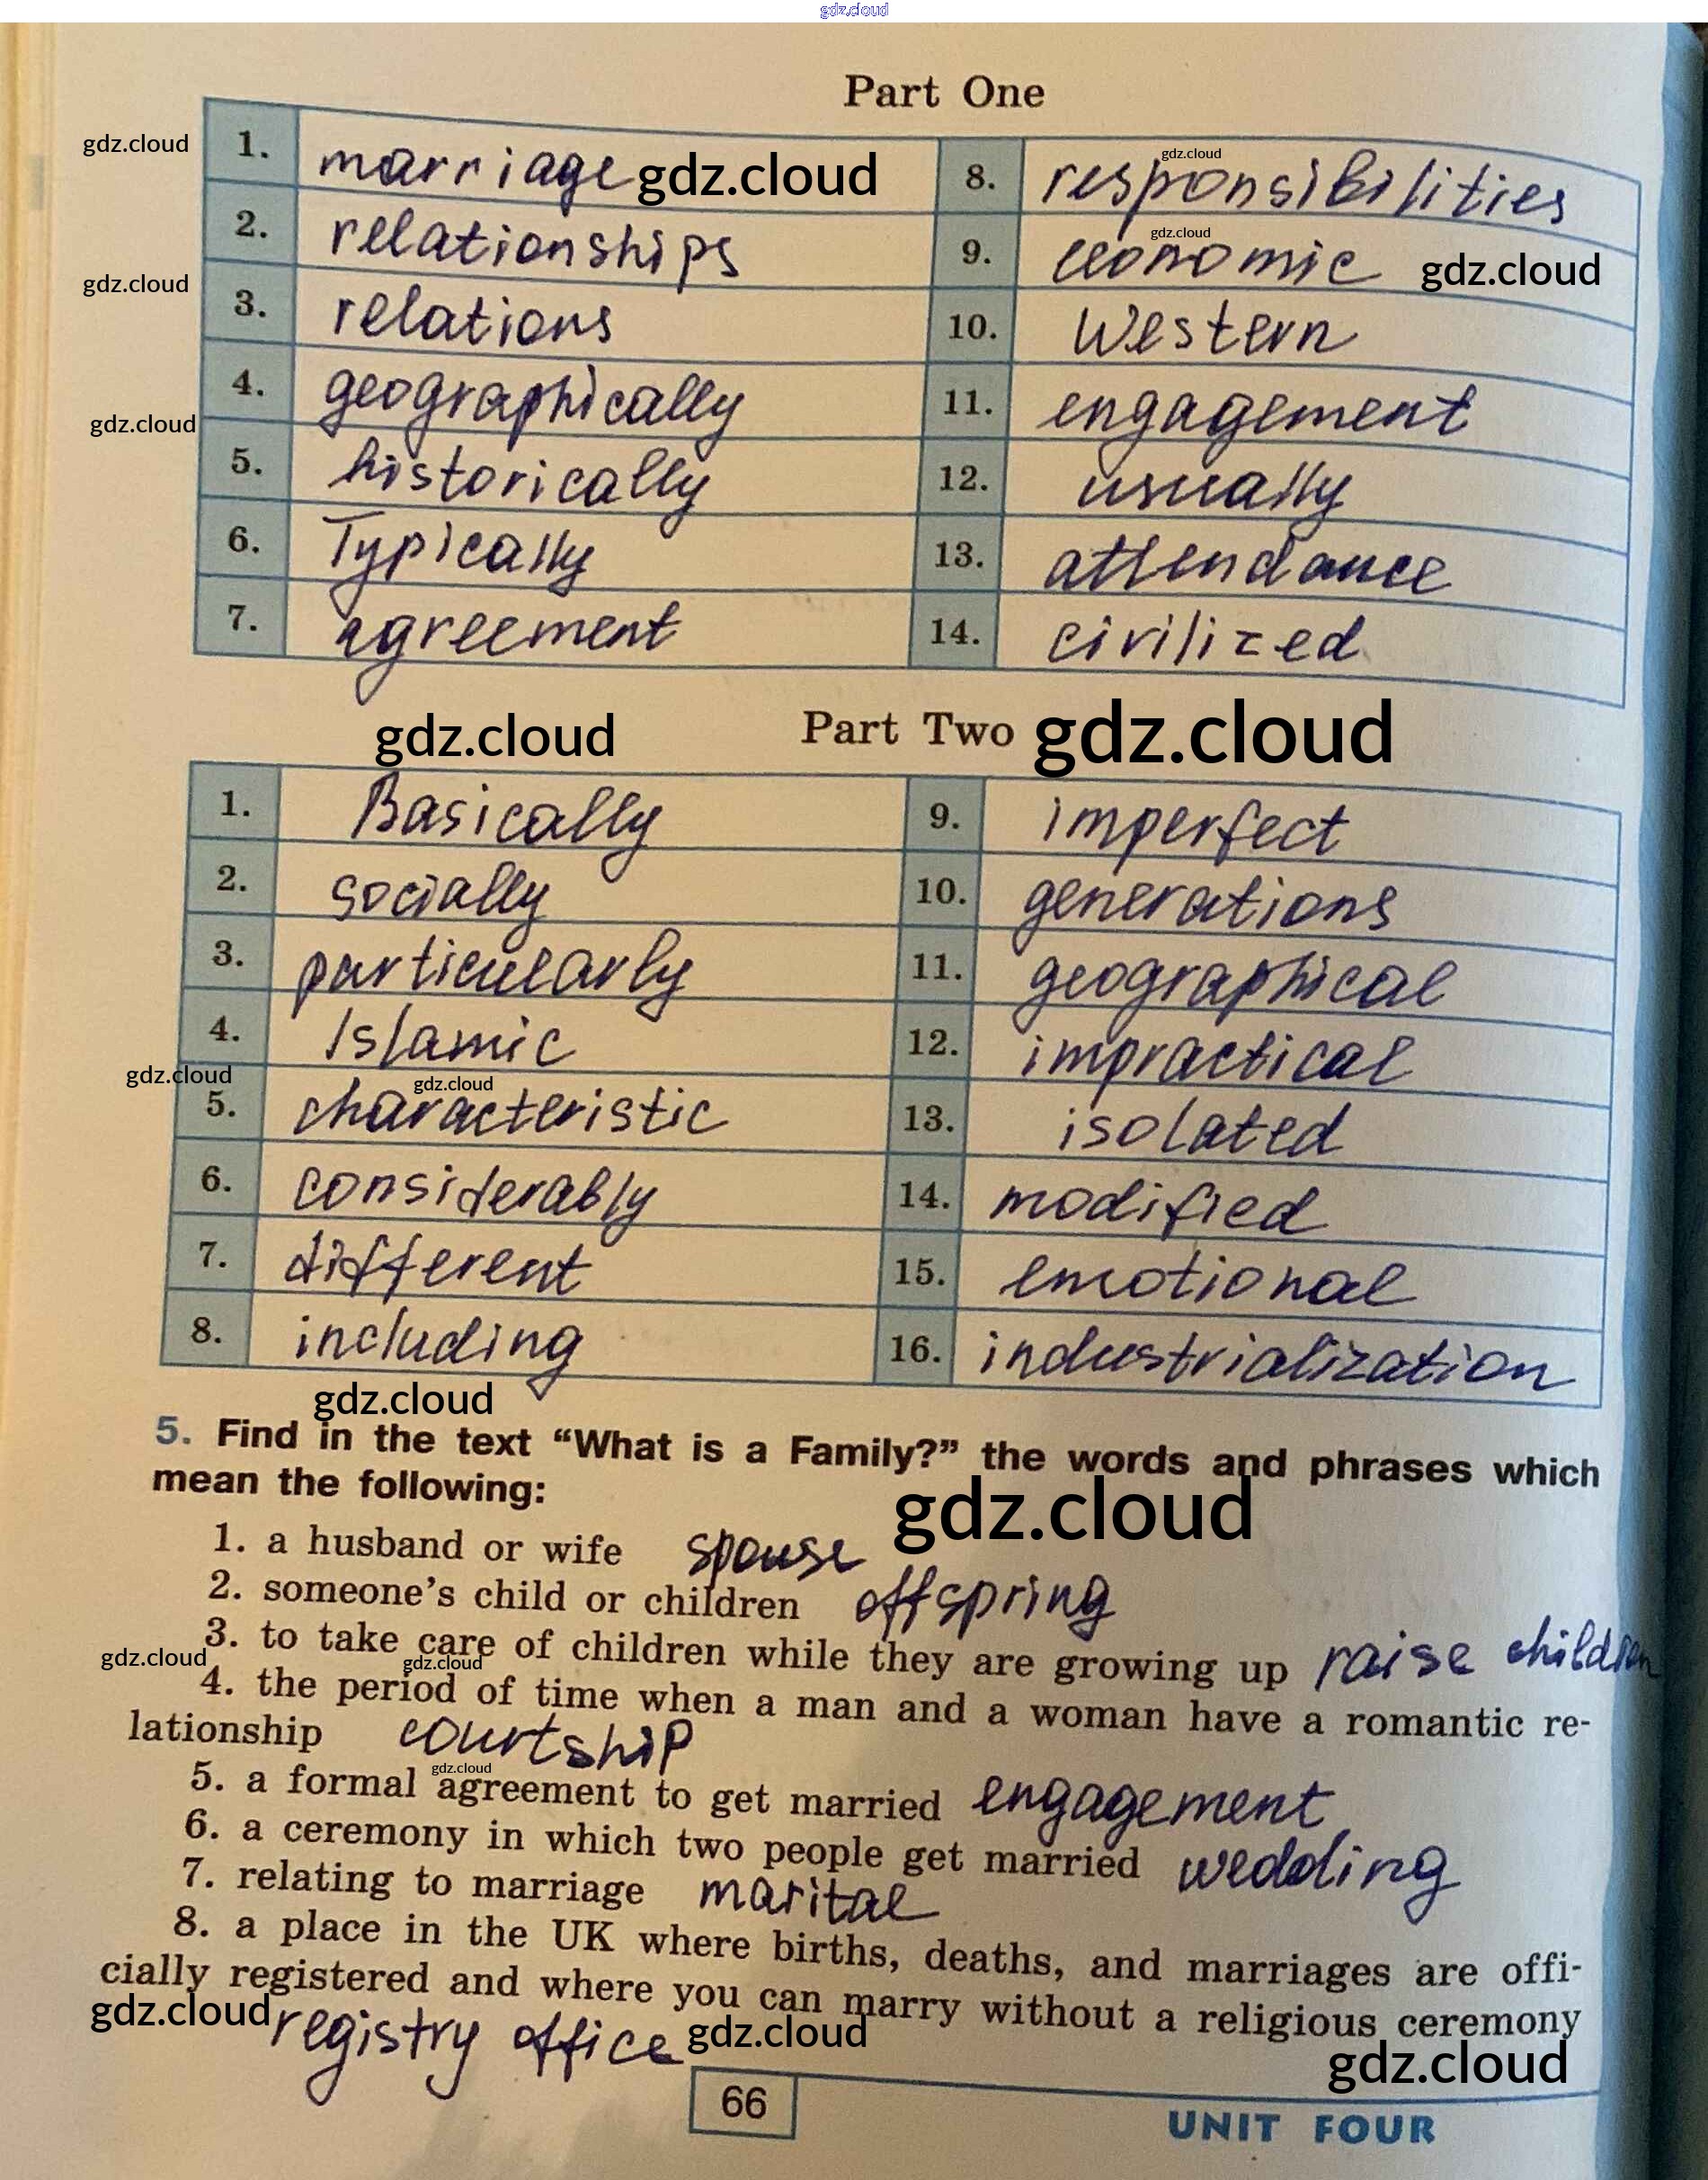 gdz.cloud
Part One
gdz.cloud
1. marriage gdz.cloud 8. responsibilities gdz.cloud
2. relationships 9. economic gdz.cloud gdz.cloud
gdz.cloud
3. relations 10. Western
4. geographically 11. engagement
gdz.cloud
5. historically 12. usually
6. Typically 13. attendance
7. agreement 14. civilized
gdz.cloud Part Two gdz.cloud
1. Basically 9. imperfect
2. socially 10. generations
3. particularly 11. geographical
4. Islamic 12. impractical
gdz.cloud gdz.cloud
5. characteristic 13. isolated
6. considerably 14. modified
7. different 15. emotional
8. including 16. industrialization
gdz.cloud
5. Find in the text “What is a Family?” the words and phrases which
mean the following:
gdz.cloud
1. a husband or wife spouse
2. someone’s child or children offspring
3. to take care of children while they are growing up raise children
gdz.cloud gdz.cloud
4. the period of time when a man and a woman have a romantic re-
lationship courtship
gdz.cloud
5. a formal agreement to get married engagement
6. a ceremony in which two people get married wedding
7. relating to marriage marital
8. a place in the UK where births, deaths, and marriages are offi-
cially registered and where you can marry without a religious ceremony
gdz.cloud registry office gdz.cloud
gdz.cloud
66
UNIT FOUR